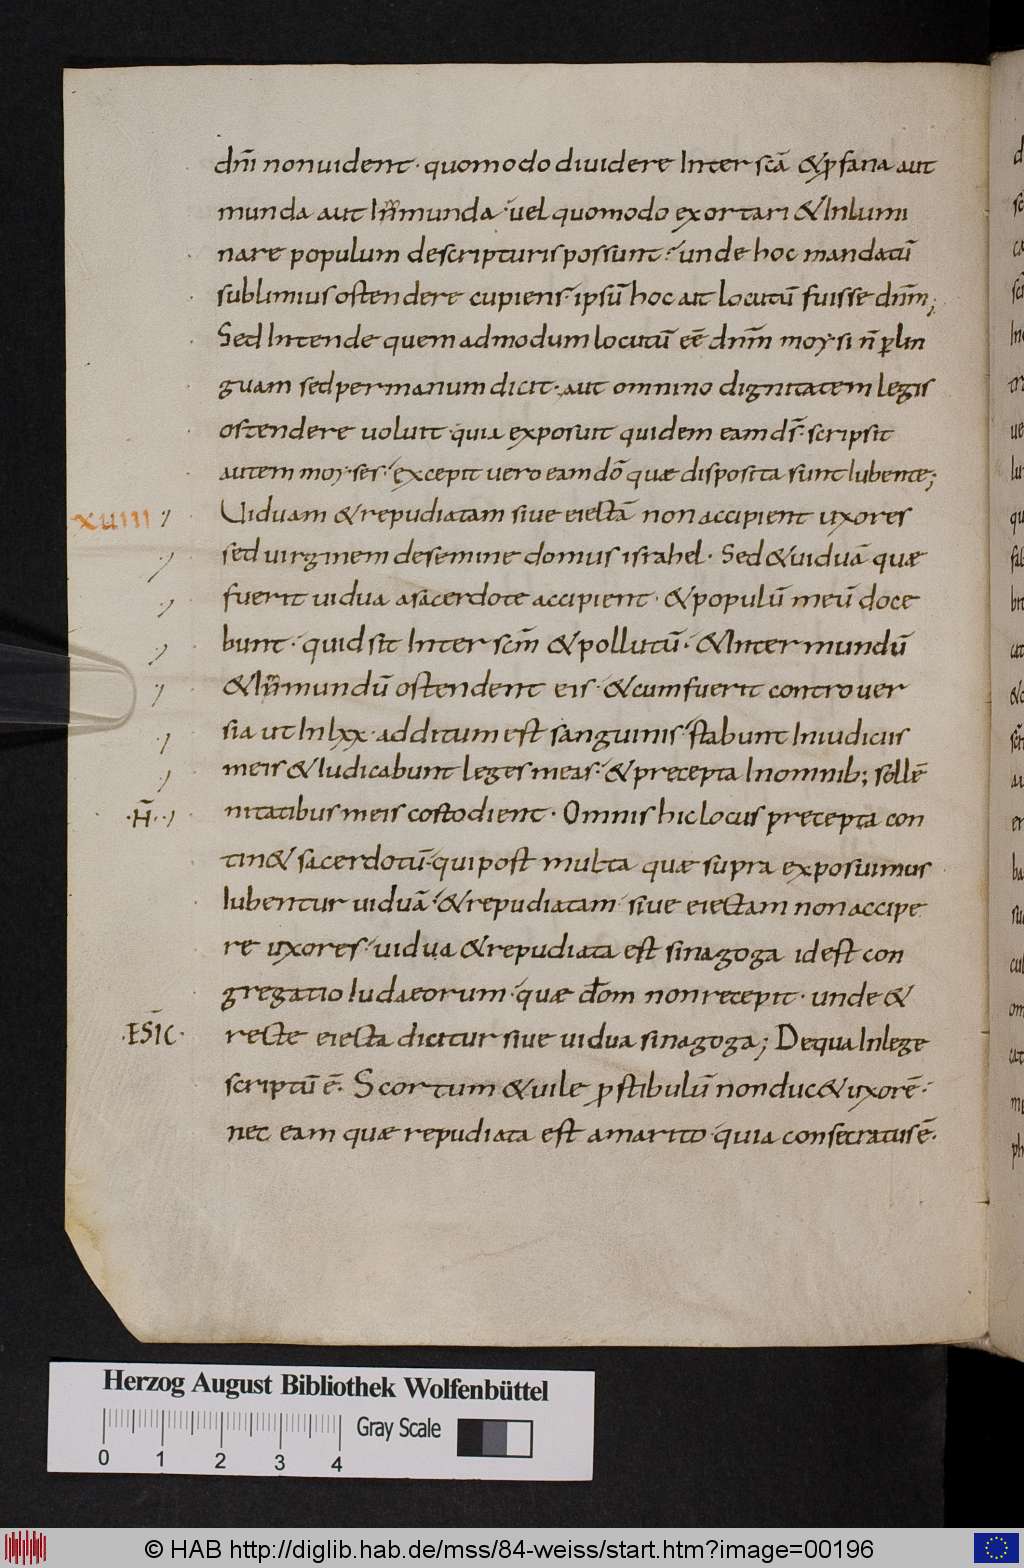 dñi non uident· quomodo diuidere Inter scā & ꝓfana aut
munda aut Inmunda· uel quomodo exortari & Inlumi
nare populum descripturis possunt· unde hoc mandatū
sublimius ostendere cupiens· ipsū hoc ait locutū fuisse dñm;
Sed Intende quem admodum locutū eē dñm moysi n̄ ꝑ lin
guam sed per manum dicit· aut omnino dignitatem legis
ostendere uoluit· quia exposuit quidem eam ds̄· scripsit
autem moyses· excepit uero eam dō quae disposita sunt lubente;
xuiiii Uiduam & repudiatam siue eiectā non accipient uxores
sed uirginem de semine domus israhel· Sed & uiduā quae
fuerit uidua a sacerdote accipient· & populū meū doce
bunt· quid sit Inter scm̄ & pollutū· & Inter mundū
& Inmundū ostendent eis· & cum fuerit controuer
sia ut In lxx· additum est sanguinis· stabunt In iudiciis
meis & Iudicabunt leges meas· & precepta In omnib; sollē
·H̄· nitatibus meis costodient· Omnis hic locus precepta con
tin& sacerdotū· qui post multa quae supra exposuimus
lubentur uiduā· & repudiatam siue eiectam non accipe
re uxores· uidua & repudiata est sinagoga id est con
gregatio Iudaeorum· quae dōm non recepit· unde &
·ESIC· recte eiecta dicitur siue uidua sinagoga; De qua In lege
scriptū ē· Scortum & uile ꝓstibulū non duc& uxorē·
nec eam quae repudiata est a marito· quia consecratus ē·
Herzog August Bibliothek Wolfenbüttel
Gray Scale
0 1 2 3 4
© HAB http://diglib.hab.de/mss/84-weiss/start.htm?image=00196